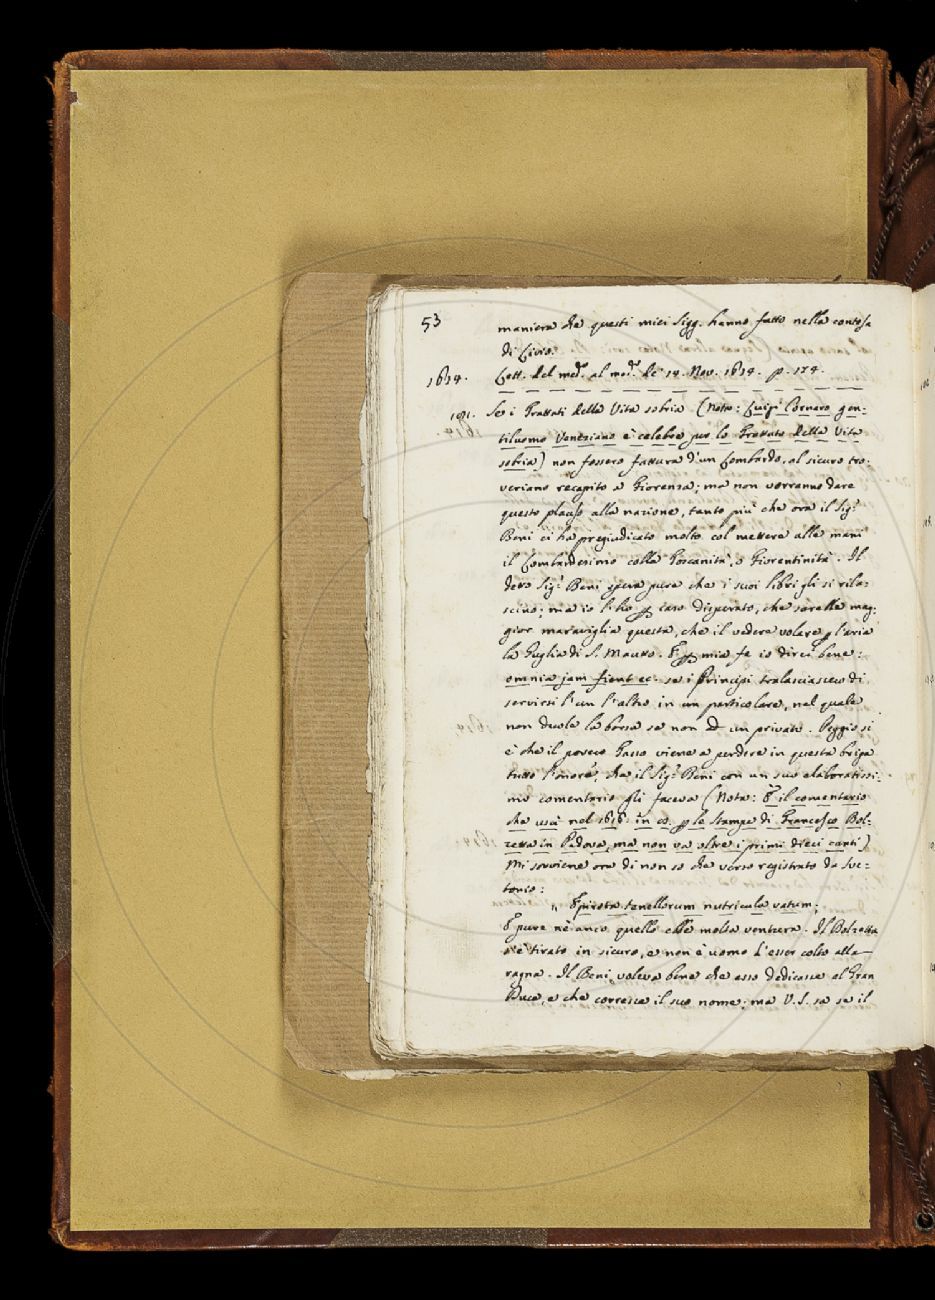 53
maniera che questi miei Sigg. hanno fatto nella contesa
di Livio.
1614. Lett. del med.º al med.º de' 14. Nov. 1614. p. 174.
181. Se i Trattati della Vita sobria (Nota: Luigi Cornaro gen:
tiluomo Veneziano è celebre per lo Trattato della Vita
sobria) non fossero fattura d'un Lombardo, al sicuro tro:
veriano recapito a Fiorenza; ma non vorranno dare
questo plauso alla nazione, tanto più che ora il Sig.r
Beni ci ha pregiudicato molto col mettere alle mani
il Lombardesimo colla Toscanità, o Fiorentinità. Il
detto Sig.r Beni spera pure che i suoi libri gli si rila:
scino; ma io l'ho p caso disperato, che sarebbe mag:
gior maraviglia questa, che il vedere volare p l'aria
la Guglia di S. Mauto. E p mia fe io direi bene:
omnia jam fient ec. se i Principi tralasciassero di
servirsi l'un l'altro in un particolare, nel quale
non duole la borsa se non ad un privato. Peggio si
è che il povero Tasso viene a perdere in questa briga
tutto l'onore, che il Sig.r Beni con un suo elaboratissi:
mo comentario gli faceva (Nota: È il comentario
che uscì nel 1616. in p le stampe di Francesco Bol:
zetta in Padova, ma non va oltre i primi dieci canti)
Mi sovviene ora di non so che verso registrato da Sve:
tonio:
„ Epirota tenellorum nutricula vatum;
E pure nè anco quello ebbe molta ventura. Il Bolzetta
s'è tirato in sicuro, e non è uomo d'esser colto alla
ragna. Il Beni voleva bene che esso dedicasse al Gran
Duca, e che corresse il suo nome; ma V.S. sa se il